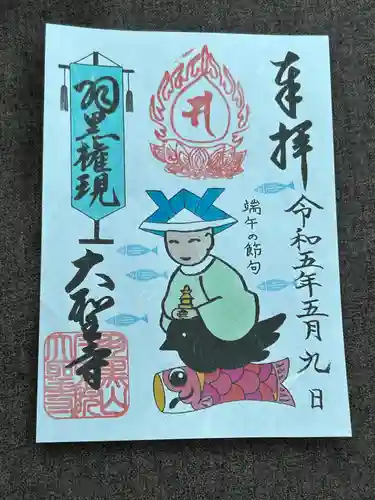 奉拝
令和五年五月九日
端午の節句
羽黒権現
大聖寺